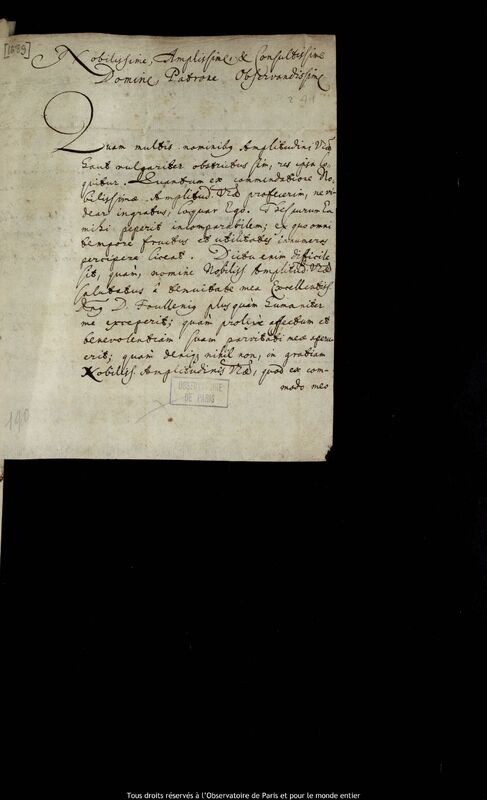 [1689]
Nobilissime, Amplissime, & Consultissime
Domine Patrone Observandissime
291
Quam multis nominibq Amplitudini Vræ
haut vulgariter obstrictus sim, res ipsa lo-
quitur. Quantum ex commendatione No-
bilissimæ Amplitud. Vræ profecerim, ne vi-
dear ingratus, loquar Ego. Thesaurum Ea
mihi peperit incomparabilem; ex quo omni
tempore fructus et utilitates innumeros
percipere liceat. Dictu enim difficile
sit, quam, nomine Nobiliss. Amplitud. Vræ
salutatus à tenuitate mea Excellentiss.
D. Foullenig plus quam humaniter
me exceperit; quam prolixe affectum et
benevolentiam suam parvitati meæ aperu-
erit; quam deniq nihil non, in gratiam
Nobiliss. Amplitudinis Vræ, quod ex com-
modo meo
OBSERVATOIRE
DE PARIS
190
Tous droits réservés à l'Observatoire de Paris et pour le monde entier